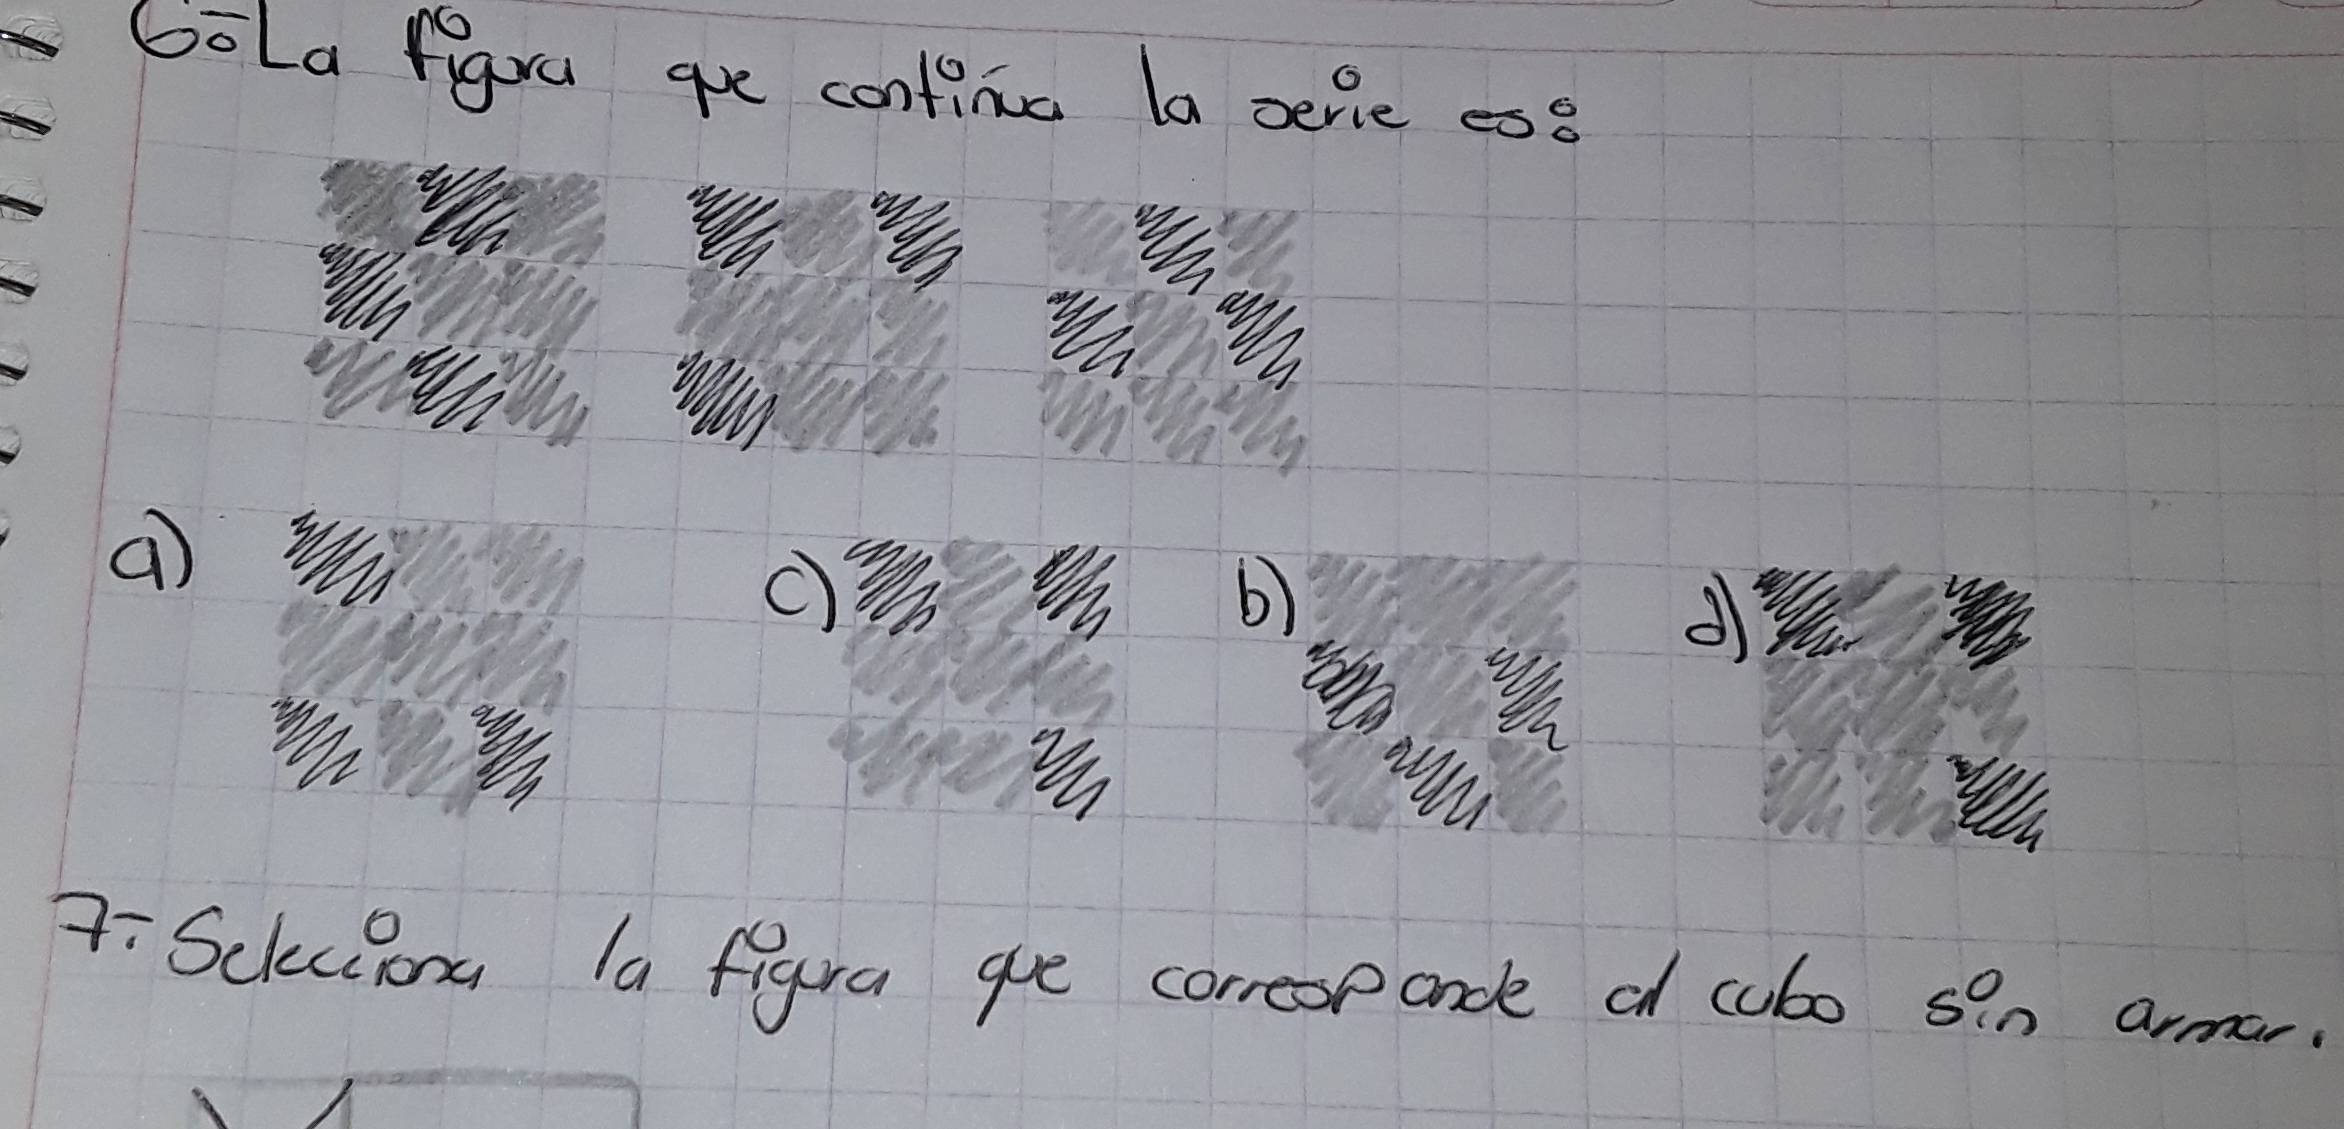 6.- La figura que continúa la serie es:
a) c) b) d)
7.- Selecciona la figura que corresponde al cubo sin armar.